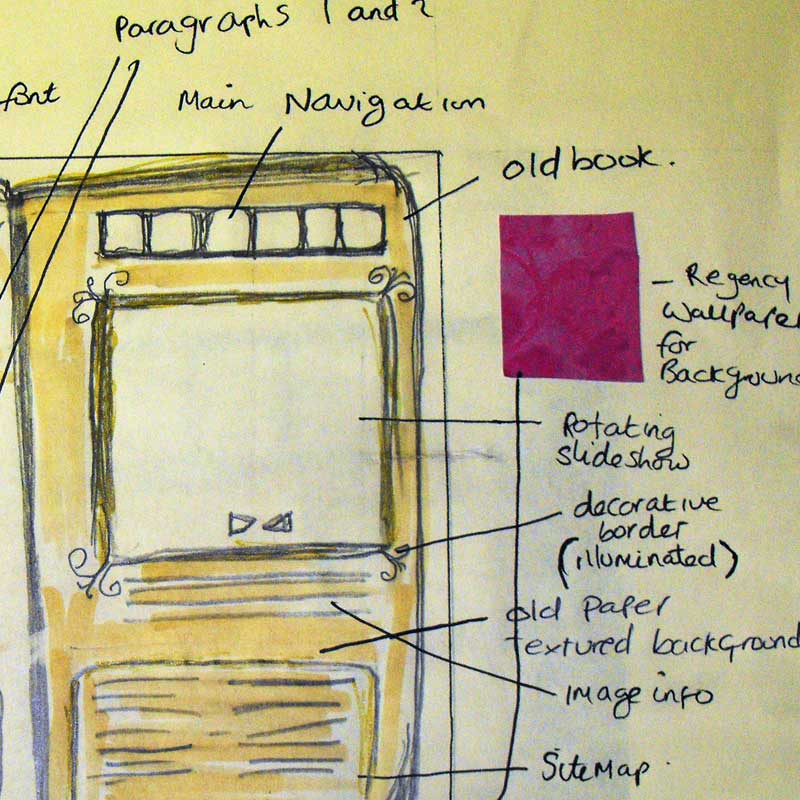 Paragraphs 1 and 2
font
Main Navigation
old book.
- Regency
Wallpaper
for
Background
Rotating
slideshow
decorative
border
(illuminated)
old Paper
textured background
Image info
SiteMap.